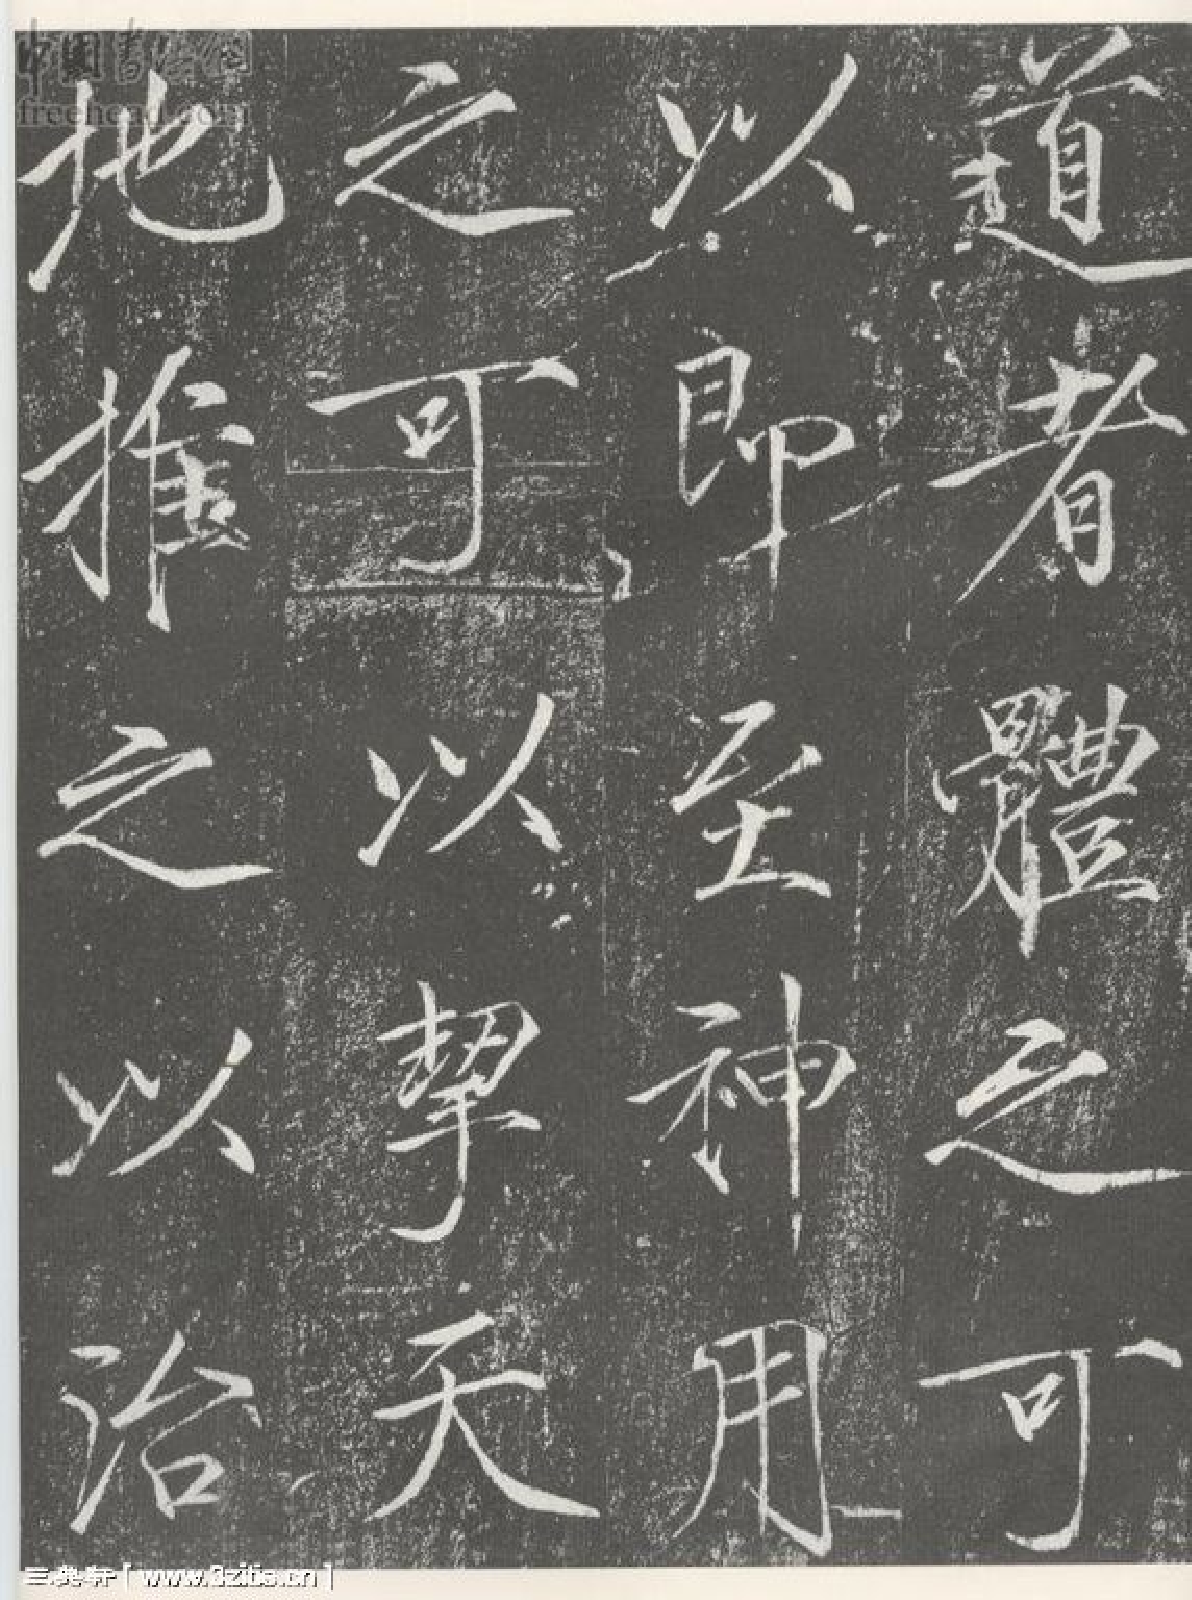 道者體之可
以即至神用
之可以挈天
地推之以治
中国书法网
freehead.com
三癸轩「www.3zits.cn」